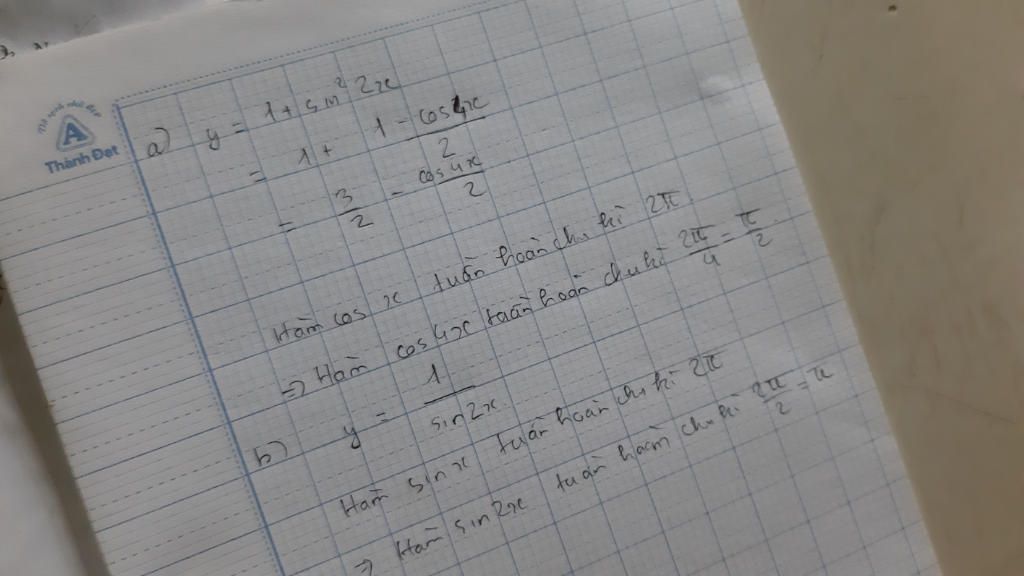 Thành Đạt
a) y = 1 + sin² 2x
= 1 + (1 - cos4x)/2
= 3/2 - cos4x/2
Hàm cos x tuần hoàn chu kì 2π
=> Hàm cos4x tuần hoàn chu kì 2π/4 = π/2
b) y = 1/sin2x
Hàm sin x tuần hoàn chu kì 2π
=> Hàm sin2x tuần hoàn chu kì 2π/2 = π